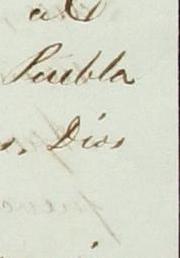 al
Puebla
s. Dios